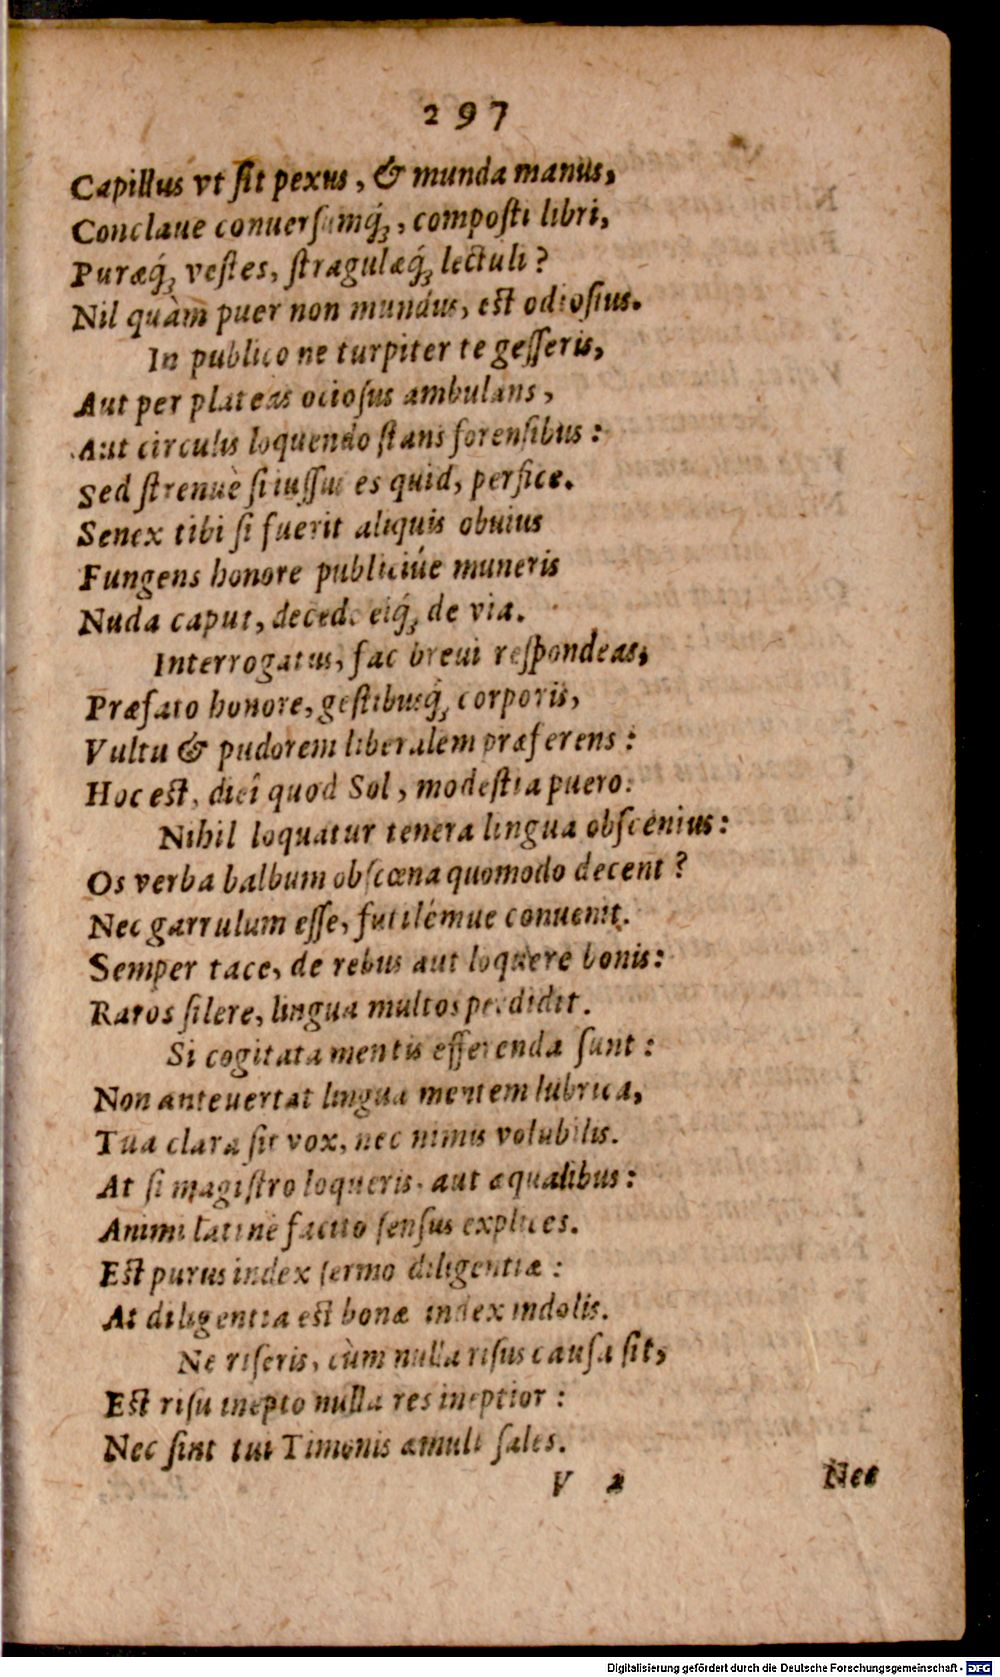 297
Capillus vt ſit pexus, & munda manus,
Conclaue conuerſumq́;, compoſti libri,
Puræq́; veſtes, ſtragulæq́; lectuli?
Nil quàm puer non mundus, eſt odioſius.
In publico ne turpiter te geſſeris,
Aut per plateas ocioſus ambulans,
Aut circulis loquendo ſtans forenſibus:
Sed ſtrenuè ſi iuſſus es quid, perfice.
Senex tibi ſi fuerit aliquis obuius
Fungens honore publiciúe muneris
Nuda caput, decede eiq́; de via.
Interrogatus, fac breui reſpondeas,
Præfato honore, geſtibusq́; corporis,
Vultu & pudorem liberalem præferens:
Hoc eſt, diei quod Sol, modeſtia puero:
Nihil loquatur tenera lingua obſcenius:
Os verba balbum obſcœna quomodo decent?
Nec garrulum eſſe, futilémue conuenit.
Semper tace, de rebus aut loquere bonis:
Raros ſilere, lingua multos perdidit.
Si cogitata mentis efferenda ſunt:
Non anteuertat lingua mentem lubrica,
Tua clara ſit vox, nec nimis volubilis.
At ſi magiſtro loqueris, aut æqualibus:
Animi latinè facito ſenſus explices.
Eſt purus index ſermo diligentiæ:
At diligentia eſt bonæ index indolis.
Ne riſeris, cùm nulla riſus cauſa ſit,
Eſt riſu inepto nulla res ineptior:
Nec ſint tui Timonis æmuli ſales.
V 2 Nec
Digitalisierung gefördert durch die Deutsche Forschungsgemeinschaft - DFG